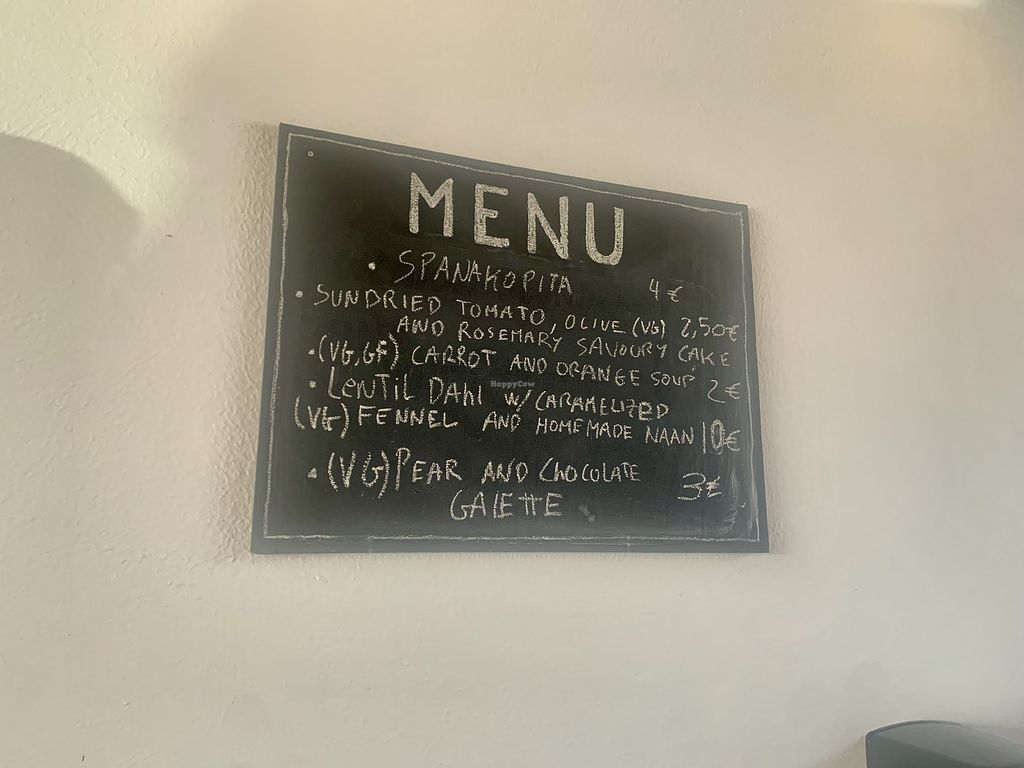 MENU
• SPANAKOPITA 4€
• SUNDRIED TOMATO, OLIVE (VG) 2,50€
AND ROSEMARY SAVOURY CAKE
• (VG,GF) CARROT AND ORANGE SOUP 2€
• LENTIL DAHl w/ CARAMELIZED
(VG) FENNEL AND HOMEMADE NAAN 10€
• (VG) PEAR AND CHOCOLATE 3€
GALETTE
HappyCow